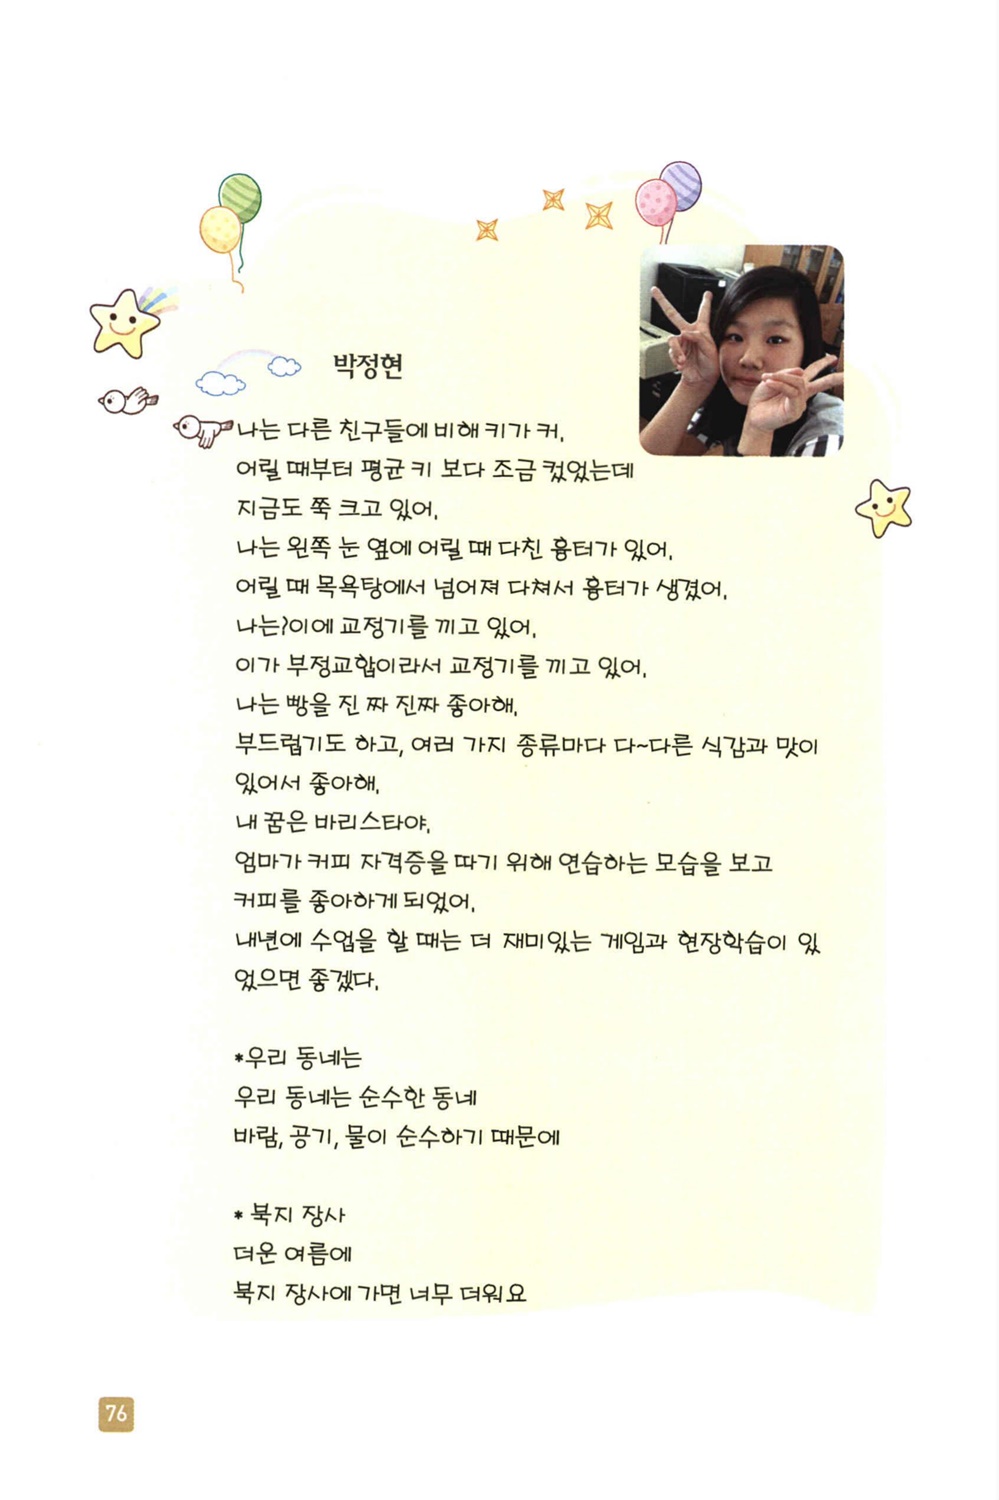 박정현
나는 다른 친구들에 비해 키가 커.
어릴 때부터 평균 키 보다 조금 컸었는데
지금도 쭉 크고 있어.
나는 왼쪽 눈 옆에 어릴 때 다친 흉터가 있어.
어릴 때 목욕탕에서 넘어져 다쳐서 흉터가 생겼어.
나는?이에 교정기를 끼고 있어.
이가 부정교합이라서 교정기를 끼고 있어.
나는 빵을 진 짜 진짜 좋아해.
부드럽기도 하고, 여러 가지 종류마다 다~다른 식감과 맛이
있어서 좋아해.
내 꿈은 바리스타야.
엄마가 커피 자격증을 따기 위해 연습하는 모습을 보고
커피를 좋아하게 되었어.
내년에 수업을 할 때는 더 재미있는 게임과 현장학습이 있
었으면 좋겠다.
*우리 동네는
우리 동네는 순수한 동네
바람, 공기, 물이 순수하기 때문에
* 북지 장사
더운 여름에
북지 장사에 가면 너무 더워요
76